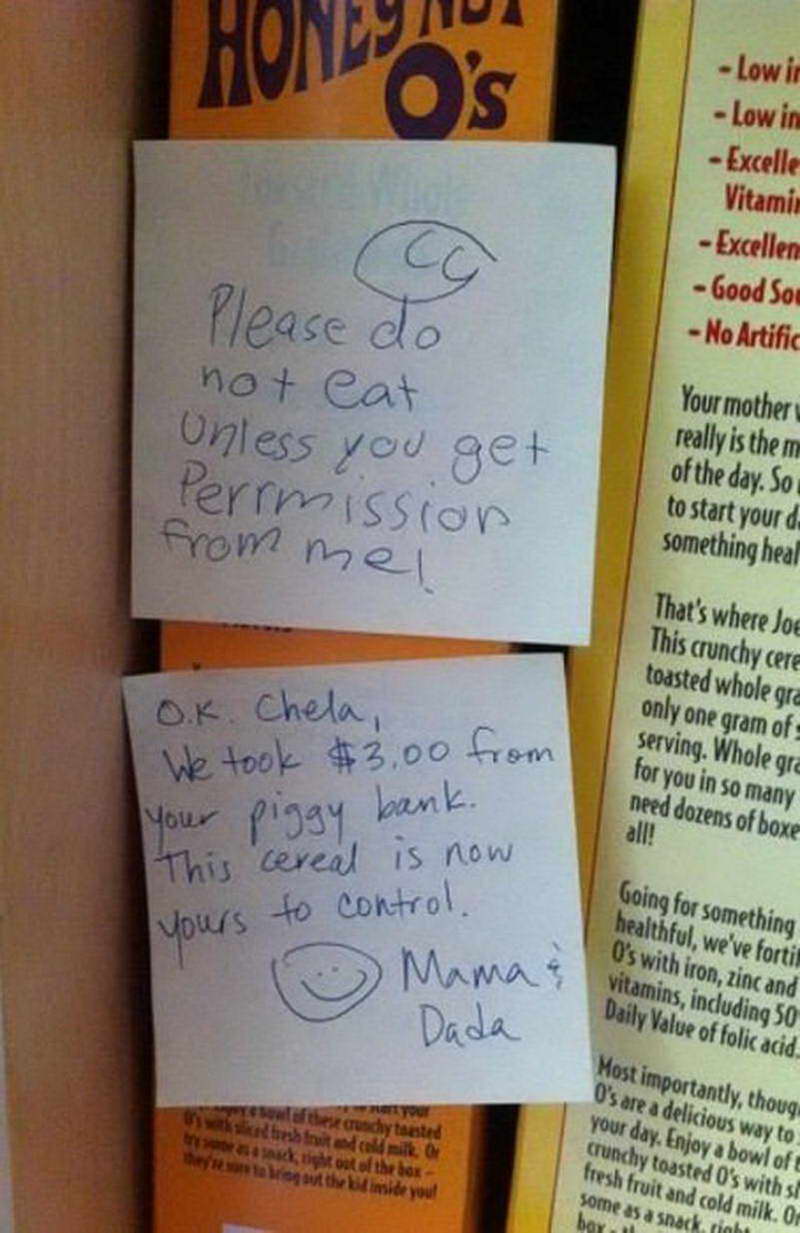 HONEY NUT
O's
CC
Please do
not eat
Unless you get
Perrmission
from me!
O.K. Chela,
We took $3.00 from
your piggy bank.
This cereal is now
yours to control.
Mama &
Dada
bowl of these crunchy toasted
O's with sliced fresh fruit and cold milk. Or
try some as a snack, right out of the box –
they're sure to bring out the kid inside you!
- Low in
- Low in
- Excelle
Vitamin
- Excellen
- Good Sou
- No Artific
Your mother w
really is the m
of the day. So
to start your d
something heal
That's where Joe
This crunchy cere
toasted whole gra
only one gram of s
serving. Whole gra
for you in so many
need dozens of boxe
all!
Going for something
healthful, we've fortif
O's with iron, zinc and
vitamins, including 50
Daily Value of folic acid.
Most importantly, thoug
O's are a delicious way to
your day. Enjoy a bowl of t
crunchy toasted O's with sl
fresh fruit and cold milk. Or
some as a snack, right
box - the